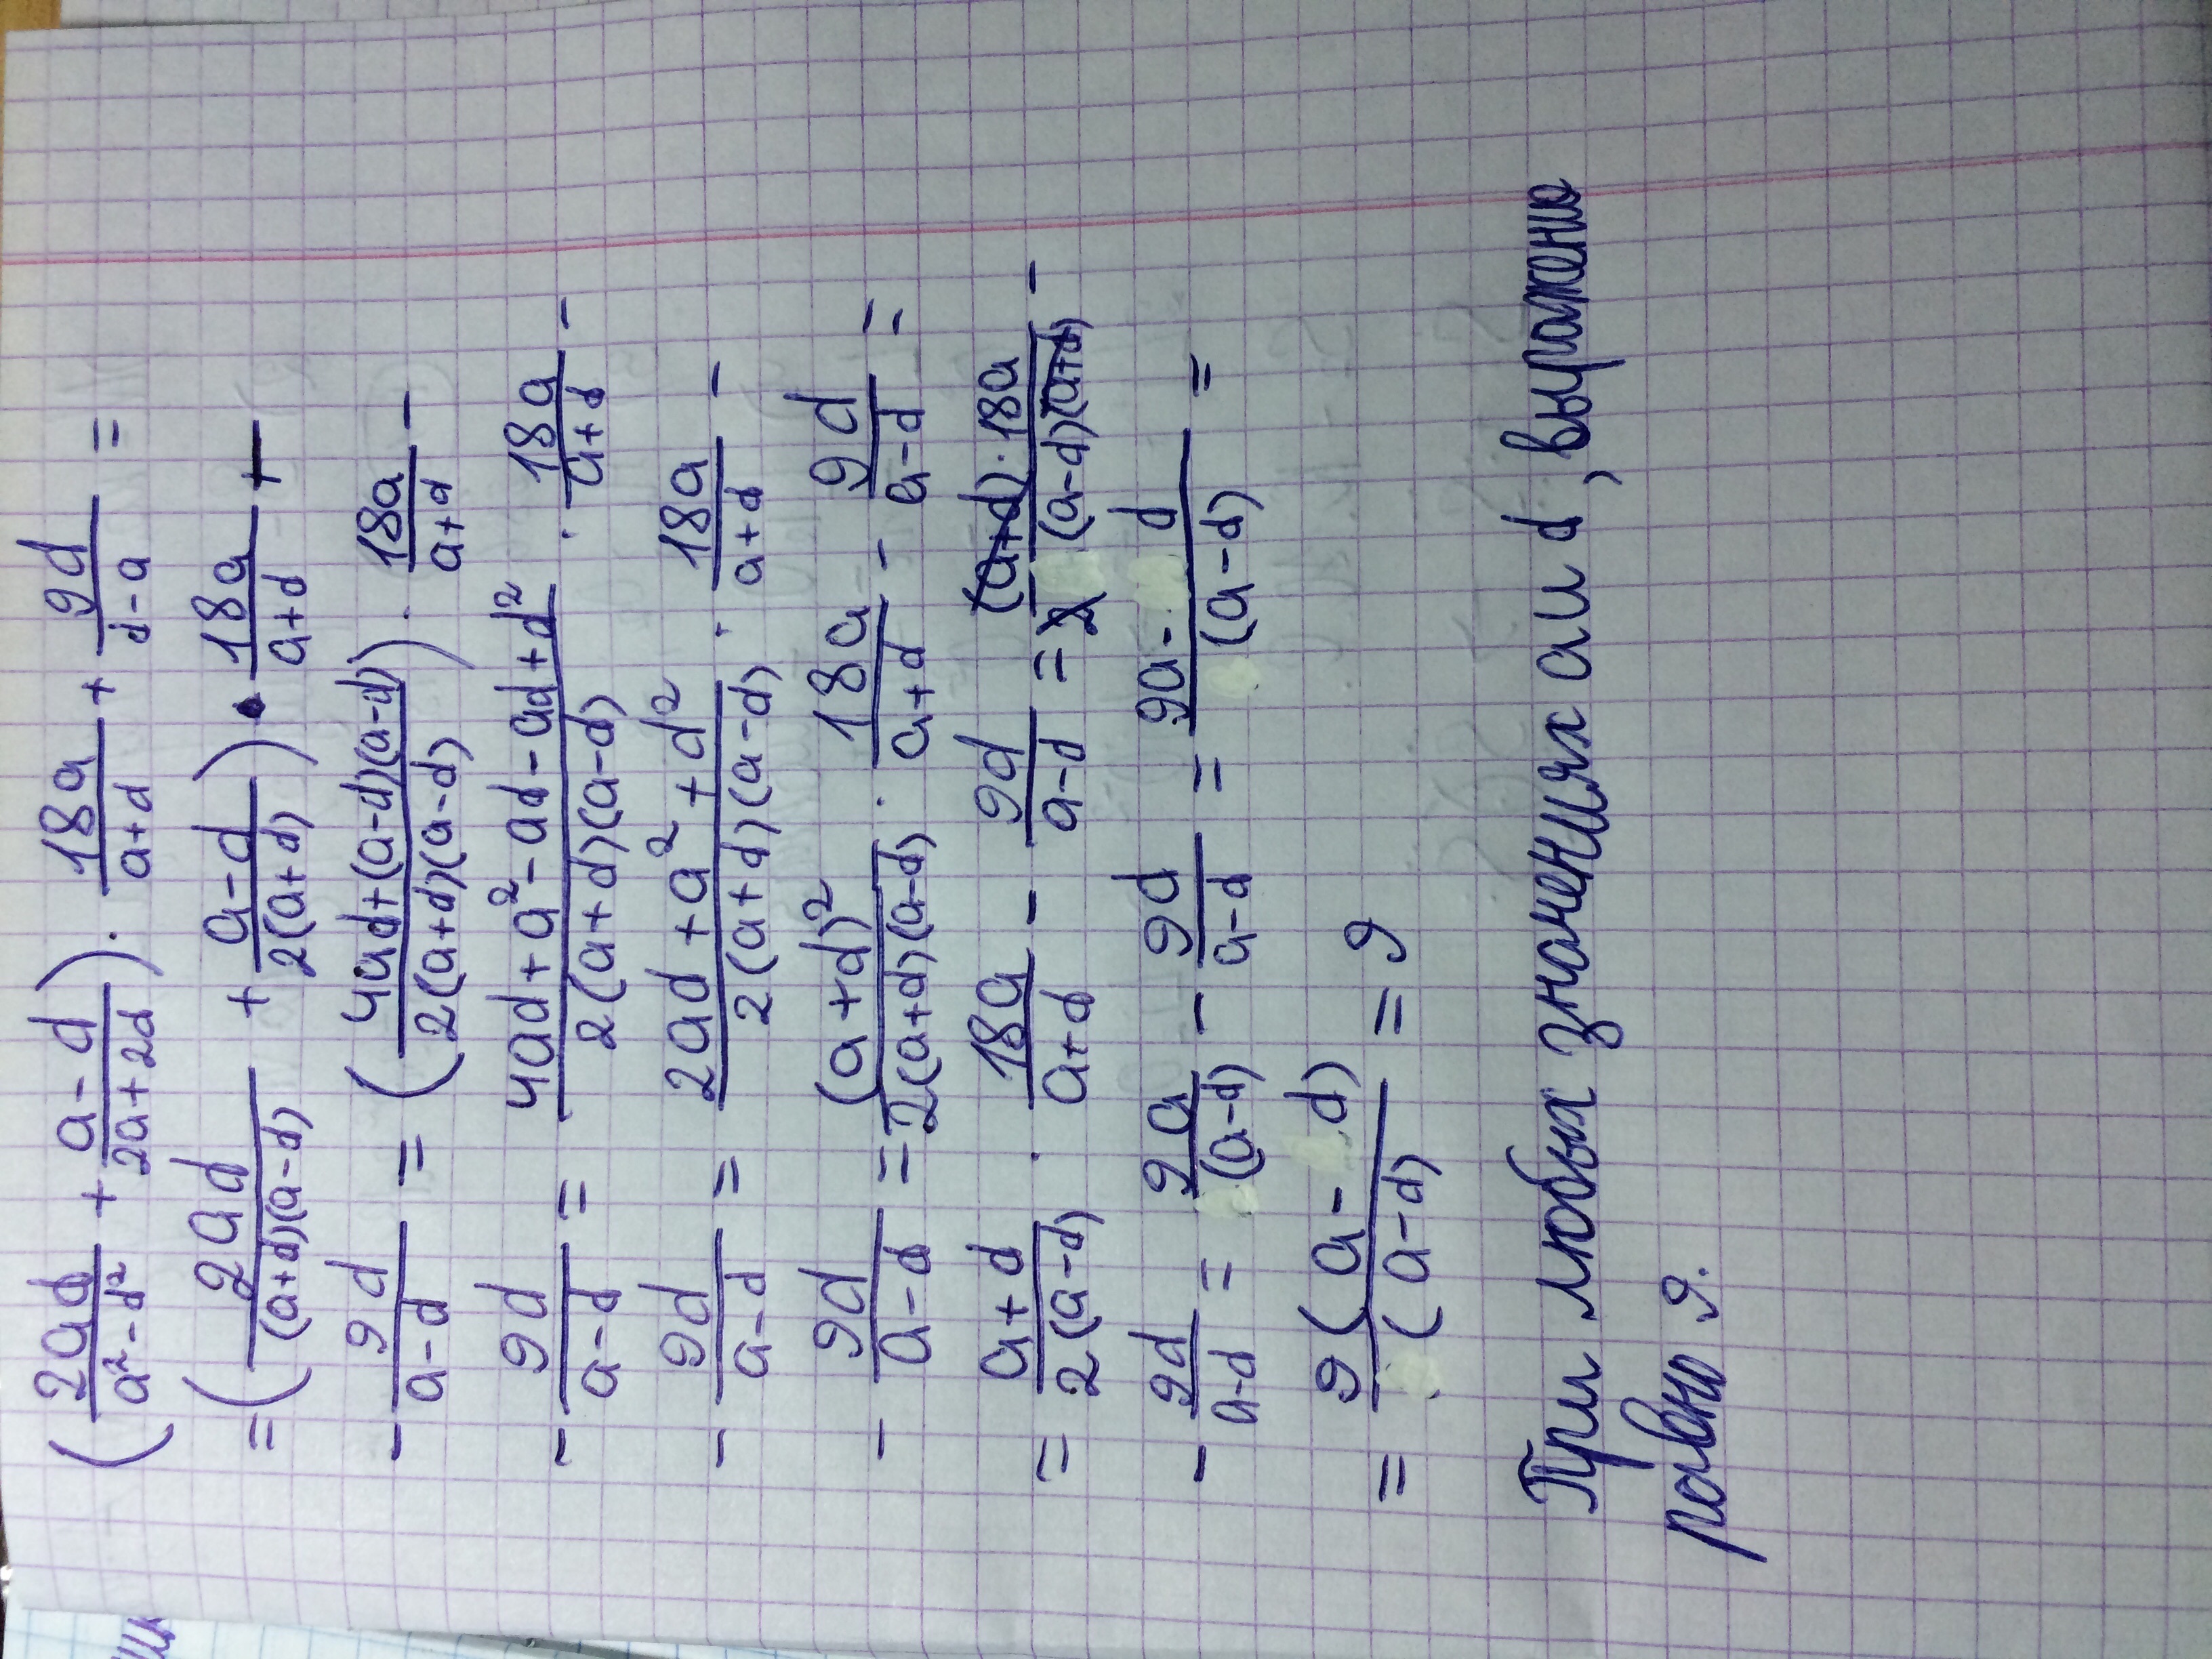 (2ad/(a²-d²) + (a-d)/(2a+2d)) · 18a/(a+d) + 9d/(d-a) =
= (2ad/((a+d)(a-d)) + (a-d)/(2(a+d))) · 18a/(a+d) +
- 9d/(a-d) = (4ad+(a-d)(a-d))/(2(a+d)(a-d)) ) · 18a/(a+d) -
- 9d/(a-d) = (4ad+a²-ad-ad+d²)/(2(a+d)(a-d)) · 18a/(a+d) -
- 9d/(a-d) = (2ad+a²+d²)/(2(a+d)(a-d)) · 18a/(a+d) -
- 9d/(a-d) = (a+d)²/(2(a+d)(a-d)) · 18a/(a+d) - 9d/(a-d) =
= (a+d)/(2(a-d)) · 18a/(a+d) - 9d/(a-d) = (a+d)·18a/(2(a-d)(a+d)) -
- 9d/(a-d) = 9a/(a-d) - 9d/(a-d) = (9a- d)/(a-d) =
= 9(a-d)/(a-d) = 9
При любых значениях a и d, выражено
равно 9.